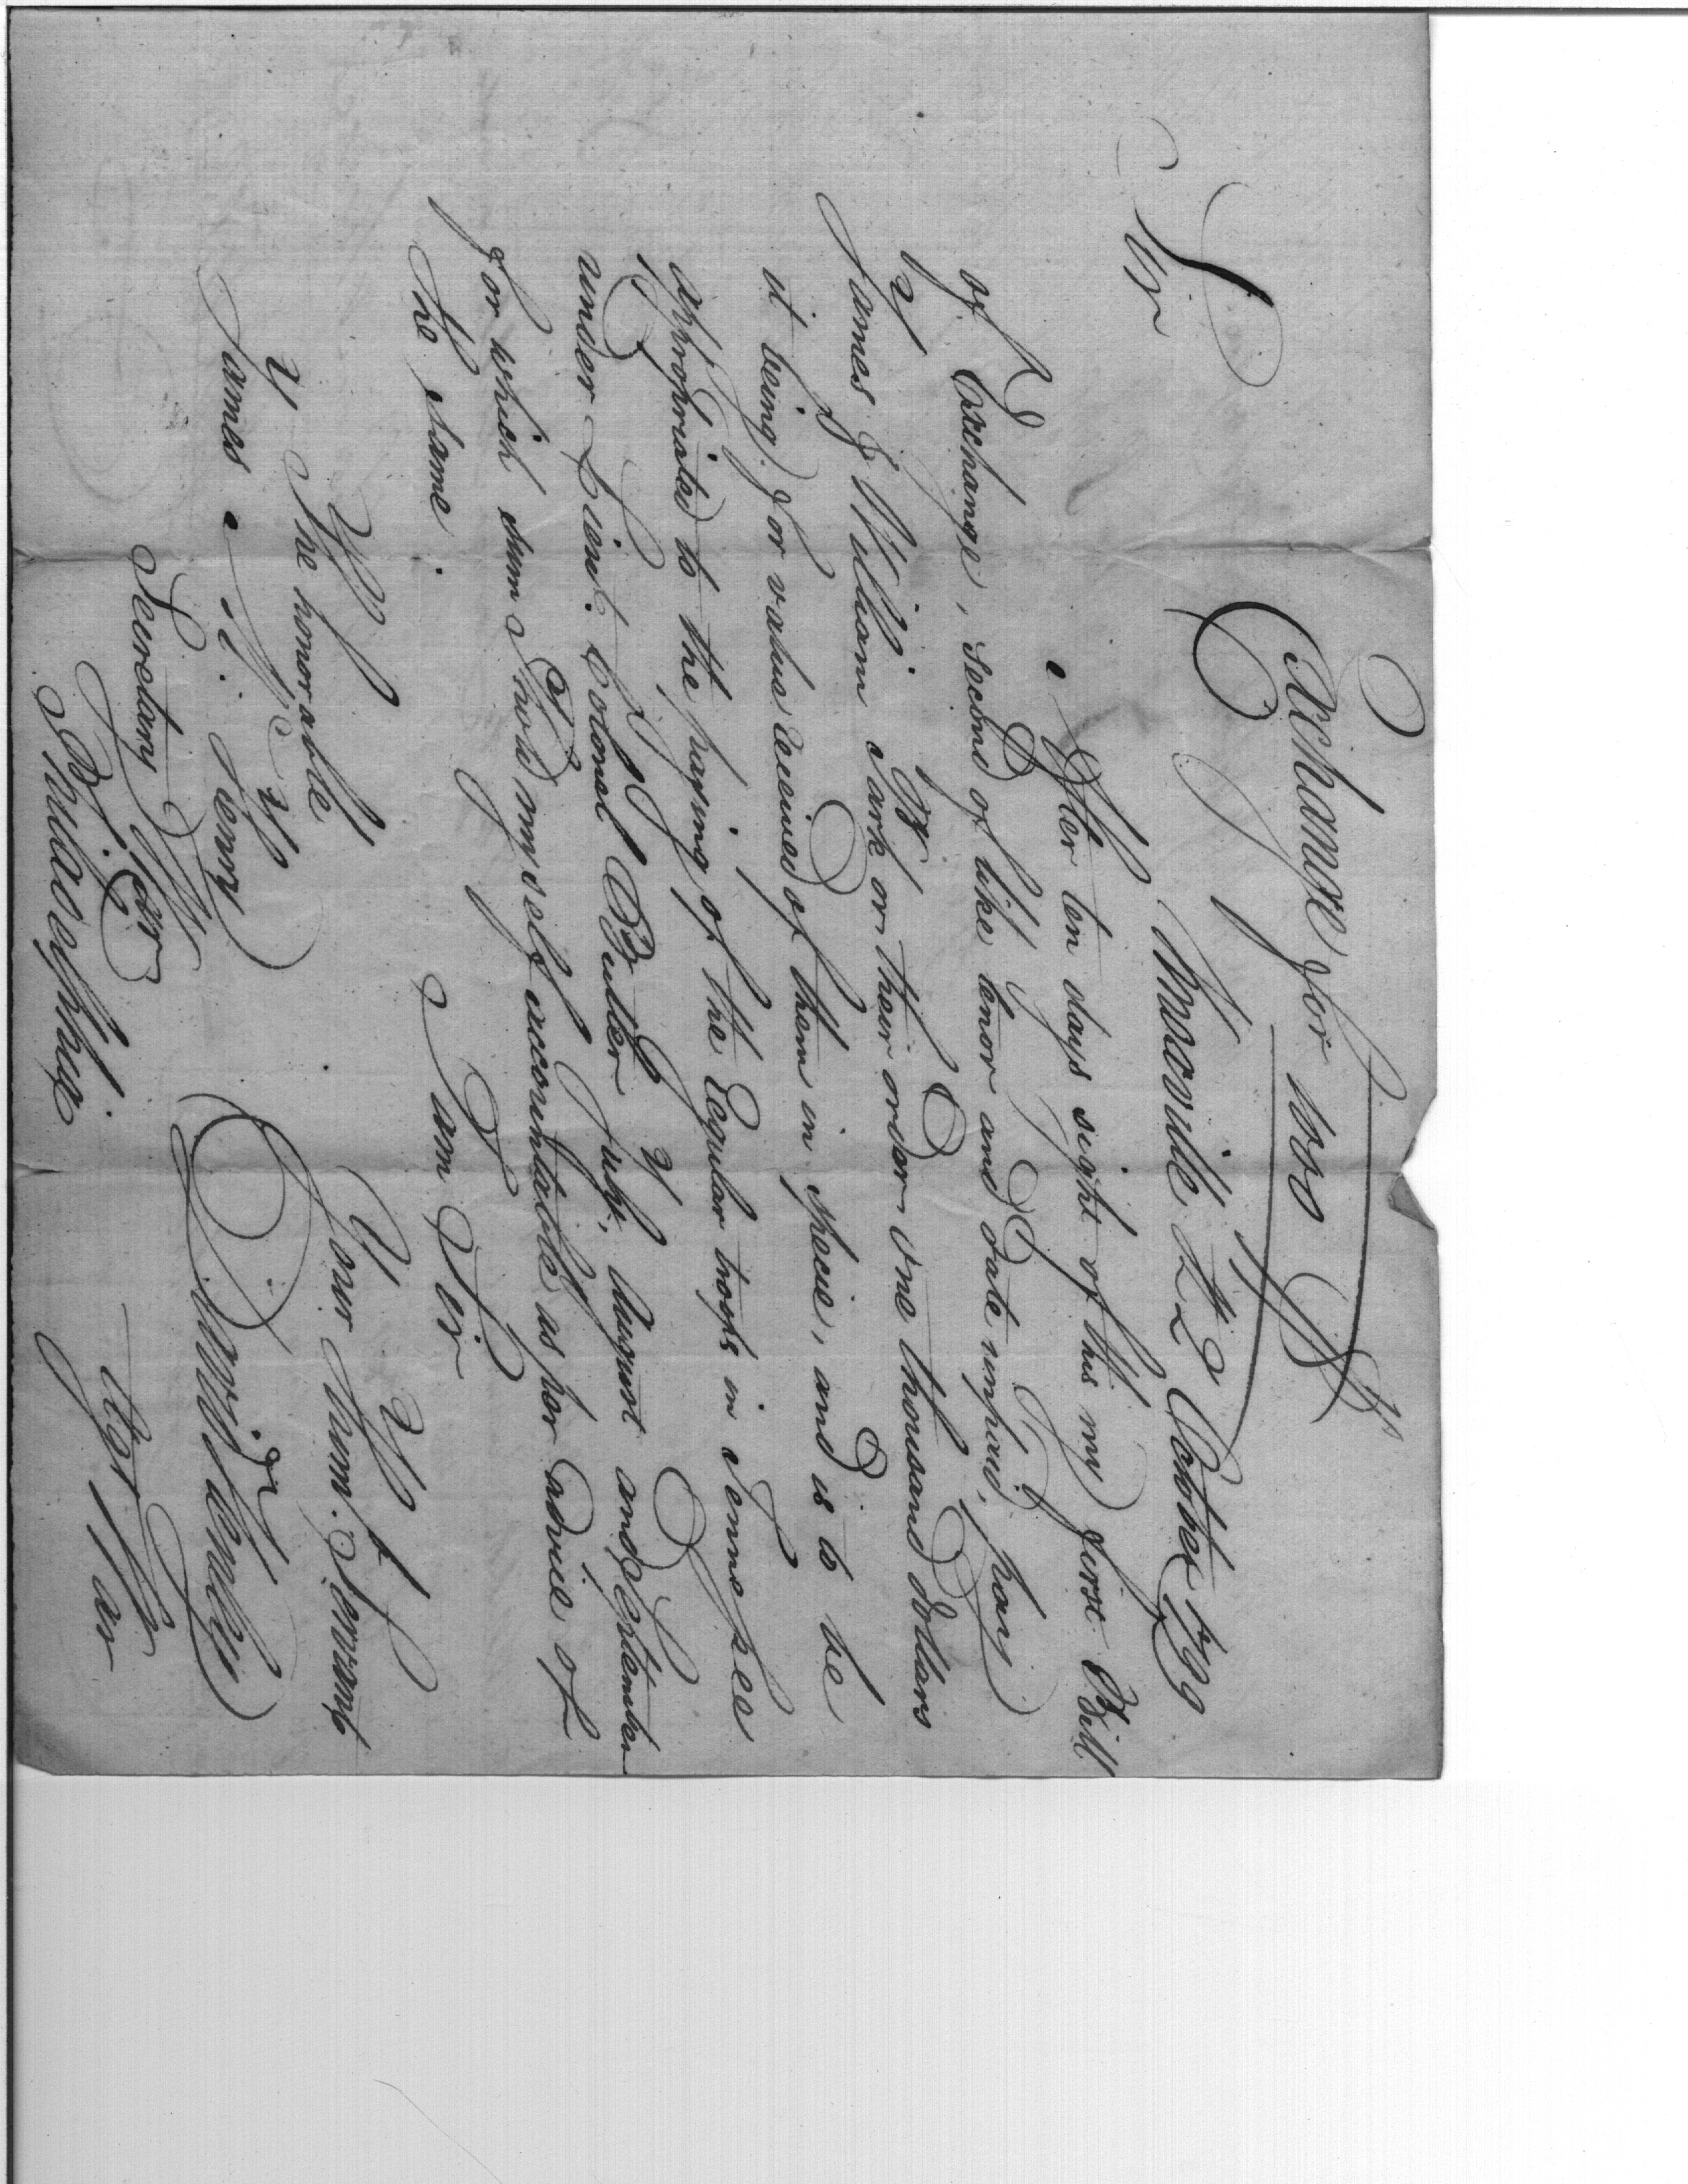 Exchange for 1000 Drs
Knoxville 22 October 1799
Sir
After ten days sight of this my first Bill
of Exchange, Second of like tenor and date unpaid, pay
James & William Park or their order One thousand dollars
it being for value Received of them in specie, and is to be
appropriated to the paying of the Regular troops in Tennessee
under Lieut. Colonel Butler July, August and September
for which sum I hold myself accountable as per advice of
the same.
I am Sir
Your Hum. Servant
The honorable
James McHenry
David Henley
Secretary War
Agt War
Philadelphia